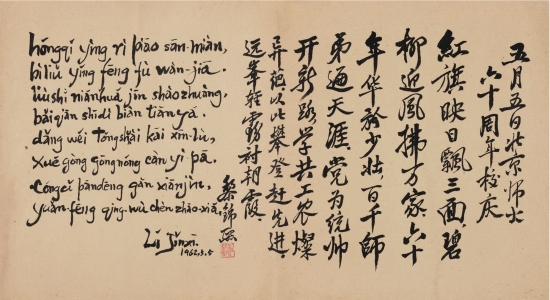 五月五日北京师大
六十周年校庆
红旗映日飘三面碧
柳迎风拂万家六十
年华少壮百千师
弟遍天涯党为统帅
开新路学共工农灿
异葩从此攀登赶先进
远峰轻雾衬朝霞
黎锦熙
hóngqí yìng rì piāo sān-miàn,
bìliǔ yíng fēng fú wàn-jiā.
liùshí niánhuá jīn shàozhuàng,
bǎiqiān shīdì biàn tiānyá.
dǎng wéi tǒngshài kāi xīn-lù,
xué gòng gōngnóng càn yì pā.
Cóngcǐ pāndēng gǎn xiānjìn,
yuǎn-fēng qīng-wù chèn zhāo-xiá.
Lí Jǐnxī
1962.5.5